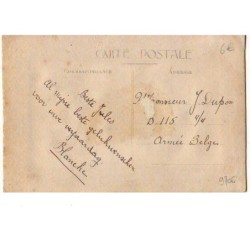 CARTE POSTALE
6€
Beste Jules
Al mijne beste gelukwenschen
voor uwe verjaardag
Blanche
Monsieur J. Dupon
D 115
Armée Belge